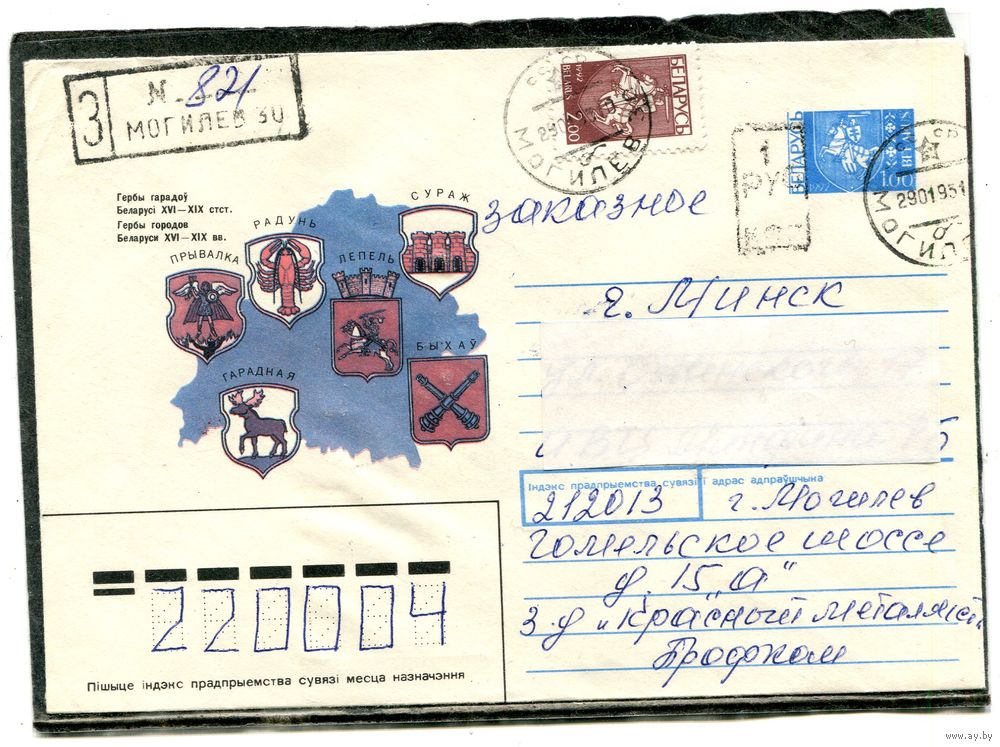 З
N 821
МОГИЛЕВ 30
БЕЛАРУСЬ
1992
BELARUS
2.00
МОГИЛЕВ
БЕЛАРУСЬ
1992
BELARUS
1.00
1
РУ
МОГИЛЕВ
2901951
Гербы гарадоў
Беларусі XVI—XIX стст.
Гербы городов
Беларуси XVI—XIX вв.
СУРАЖ
РАДУНЬ
ПРЫВАЛКА
ЛЕПЕЛЬ
БЫХАЎ
ГАРАДНАЯ
заказное
г. Минск
Індэкс прадпрыемства сувязі і адрас адпраўшчыка
212013 г. Могилев
Гомельское шоссе
д. 15 „а"
З-д „Красный металлист"
Профком
220004
Пішыце індэкс прадпрыемства сувязі месца назначэння
www.ay.by